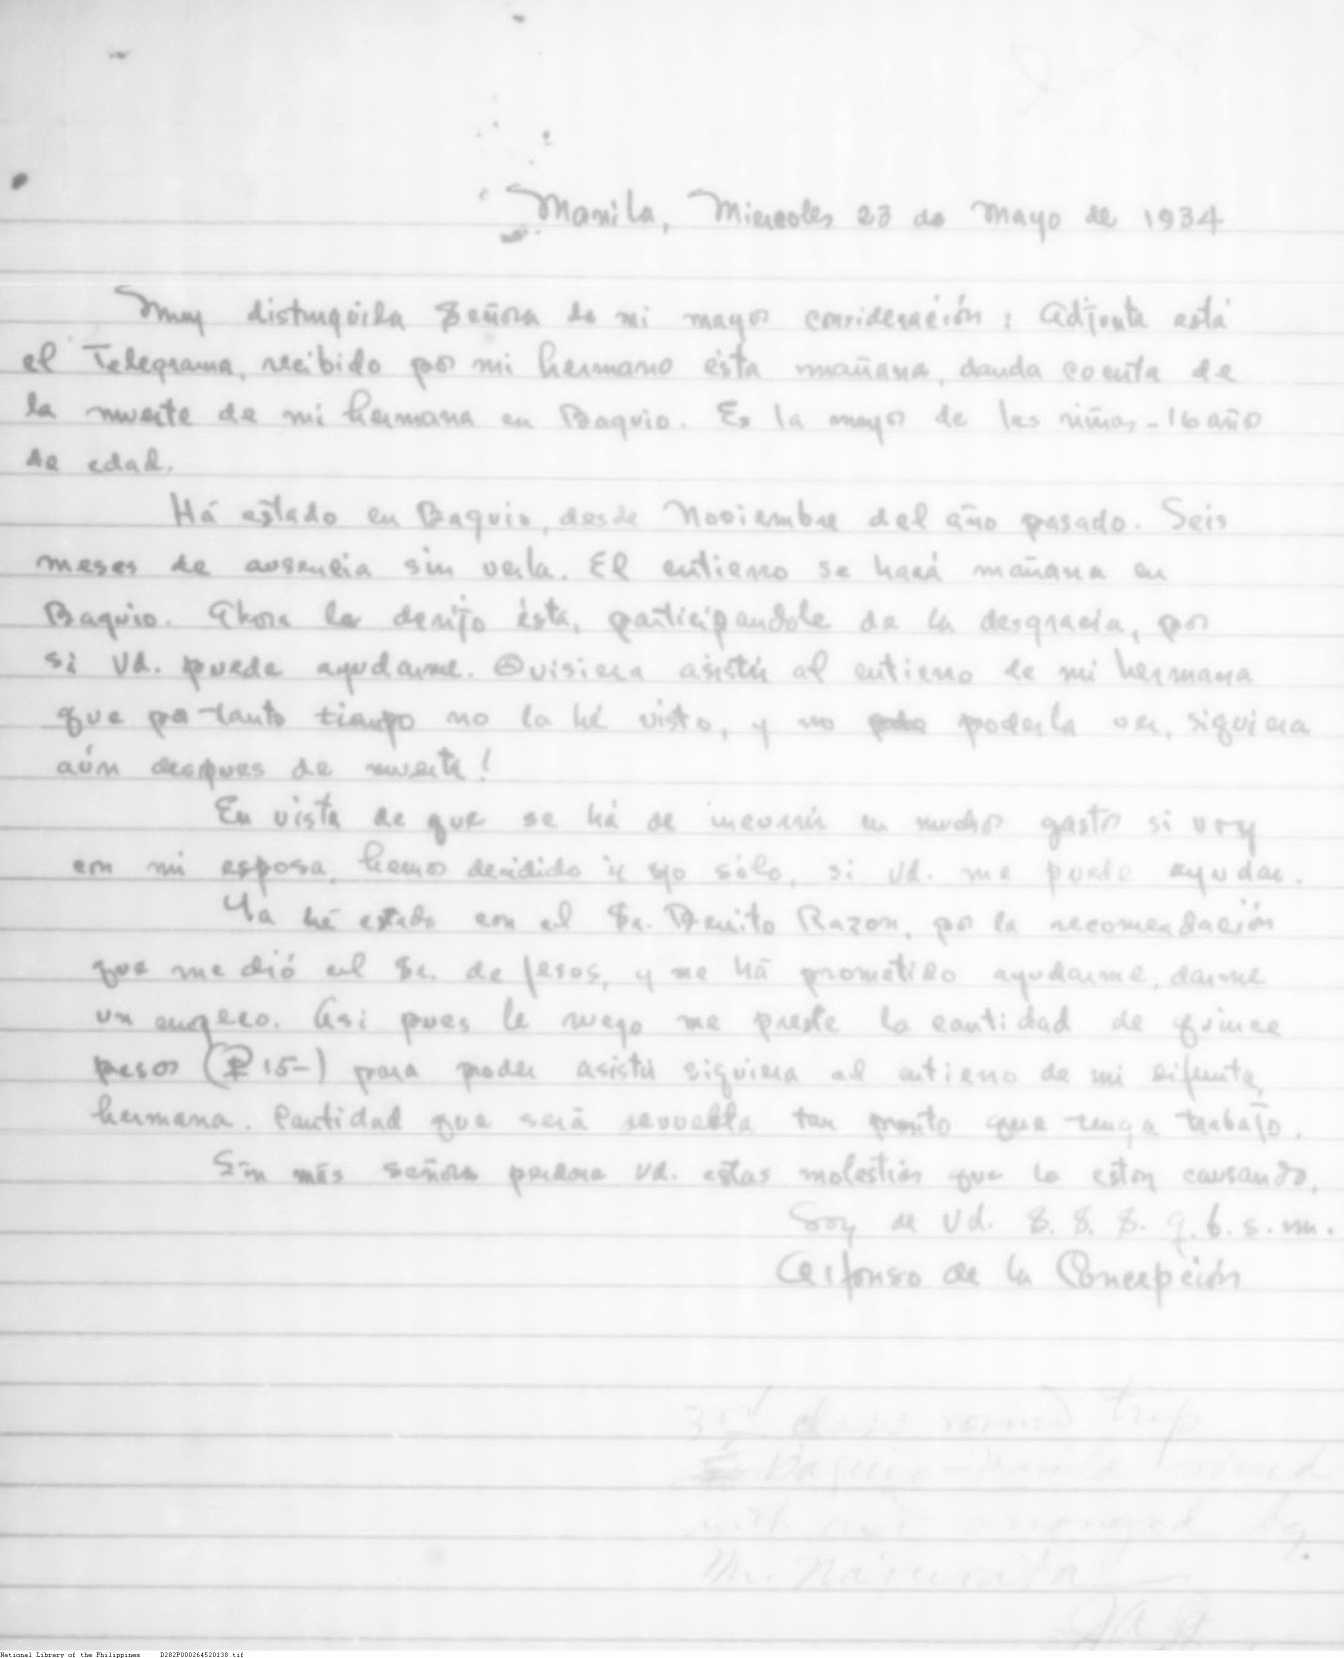 Manila, Miercoles 23 de Mayo de 1934
Muy distinguida Señora de mi mayor consideración: Adjunta está
el Telegrama, recibido por mi hermano ésta mañana, dando cuenta de
la muerte de mi hermana en Baguio. Es la mayor de las niñas - 16 año
de edad.
Há estado en Baguio, desde Noviembre del año pasado. Seis
meses de ausencia sin verla. El entierro se hará mañana en
Baguio. Ahora le dirijo ésta, participandole de la desgracia, por
si Vd. puede ayudarme. Quisiera asistir al entierro de mi hermana
que por tanto tiempo no la hé visto, y no poderla ver, siquiera
aún despues de muerta!
En vista de que se há de incurrir en mucho gasto si voy
con mi esposa, hemos decidido ir yo sólo, si Vd. me puede ayudar.
Ya hé estado con el Sr. Benito Razon, por la recomendación
que me dió el Sr. de Jesos, y me há prometido ayudarme, darme
un empleo. Asi pues le ruego me preste la cantidad de quince
pesos (₱ 15-) para poder asistir siquiera al entierro de mi difunta
hermana. Cantidad que será tan pronto que tenga trabajo.
Sin más señora perdone Vd. estas molestias que le estoy causando,
Soy de Vd. S. S. S. q. b. s. m.
Alfonso de la Concepción
3rd class round trip
Baguio - Manila
with
Mr.